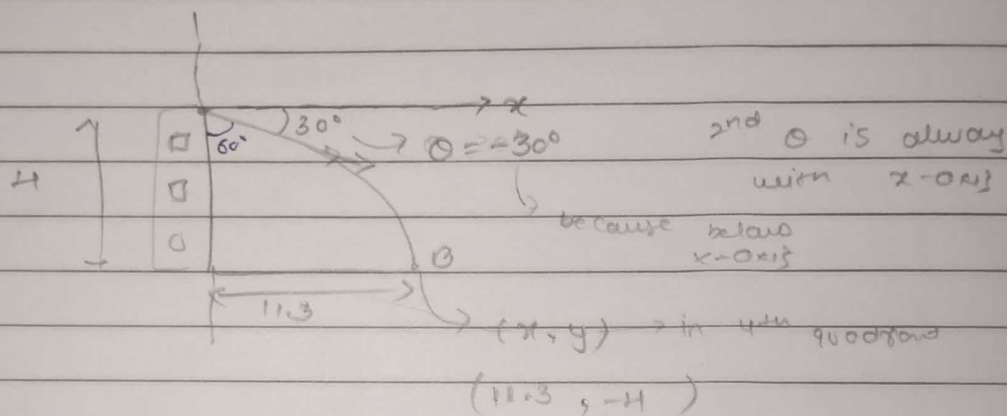 x
30°
60°
θ = -30°
2nd θ is alway
with x-axis
H
because below
x-axis
B
11.3
(x, y) → in 4th quadrant
(11.3, -H)